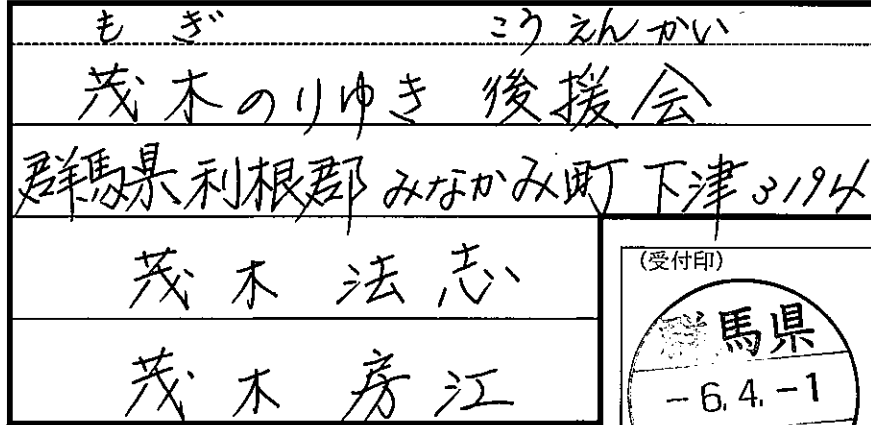 もぎ こうえんかい
茂木のりゆき 後援会
群馬県利根郡みなかみ町下津3194
茂木 法志
茂木 房江
(受付印)
群馬県
-6.4.-1